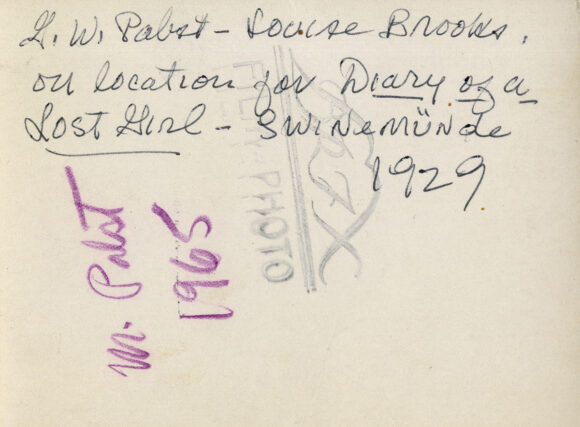 G. W. Pabst - Louise Brooks,
on location for Diary of a
Lost Girl - Swinemünde
1929
W. Pabst
1965
PHOTO